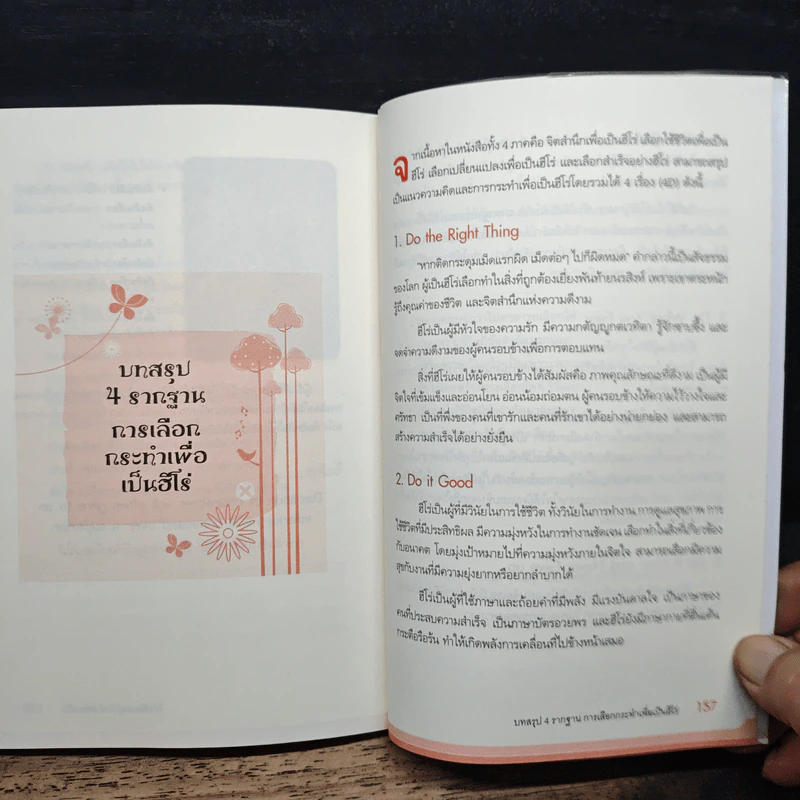 บทสรุป
4 รากฐาน
การเลือก
กระทำเพื่อ
เป็นฮีโร่
จากเนื้อหาในหนังสือทั้ง 4 ภาคคือ จิตสำนึกเพื่อเป็นฮีโร่ เลือกใช้ชีวิตเพื่อเป็น
ฮีโร่ เลือกเปลี่ยนแปลงเพื่อเป็นฮีโร่ และเลือกสำเร็จอย่างฮีโร่ สามารถสรุป
เป็นแนวความคิดและการกระทำเพื่อเป็นฮีโร่โดยรวมได้ 4 เรื่อง (4D) ดังนี้
1. Do the Right Thing
"หากติดกระดุมเม็ดแรกผิด เม็ดต่อๆ ไปก็ผิดหมด" คำกล่าวนี้เป็นสัจธรรม
ของโลก ผู้เป็นฮีโร่เลือกทำในสิ่งที่ถูกต้องเยี่ยงพันท้ายนรสิงห์ เพราะเขาตระหนัก
รู้ถึงคุณค่าของชีวิต และจิตสำนึกแห่งความดีงาม
ฮีโร่เป็นผู้มีหัวใจของความรัก มีความกตัญญูกตเวทิตา รู้จักซาบซึ้ง และ
จดจำความดีงามของผู้คนรอบข้างเพื่อการตอบแทน
สิ่งที่ฮีโร่เผยให้ผู้คนรอบข้างได้สัมผัสคือ ภาพคุณลักษณะที่ดีงาม เป็นผู้มี
จิตใจที่เข้มแข็งและอ่อนโยน อ่อนน้อมถ่อมตน ผู้คนรอบข้างให้ความไว้วางใจและ
ศรัทธา เป็นที่พึ่งของคนที่เขารักและคนที่รักเขาได้อย่างน่ายกย่อง และสามารถ
สร้างความสำเร็จได้อย่างยั่งยืน
2. Do it Good
ฮีโร่เป็นผู้ที่มีวินัยในการใช้ชีวิต ทั้งวินัยในการทำงาน การดูแลสุขภาพ การ
ใช้ชีวิตที่มีประสิทธิผล มีความมุ่งหวังในการทำงานชัดเจน เลือกทำในสิ่งที่เกี่ยวข้อง
กับอนาคต โดยมุ่งเป้าหมายไปที่ความมุ่งหวังภายในจิตใจ สามารถเลือกมีความ
สุขกับงานที่มีความยุ่งยากหรือยากลำบากได้
ฮีโร่เป็นผู้ที่ใช้ภาษาและถ้อยคำที่มีพลัง มีแรงบันดาลใจ เป็นภาษาของ
คนที่ประสบความสำเร็จ เป็นภาษาบัตรอวยพร และฮีโร่ยังมีภาษากายที่ตื่นเต้น
กระตือรือร้น ทำให้เกิดพลังการเคลื่อนที่ไปข้างหน้าเสมอ
บทสรุป 4 รากฐาน การเลือกกระทำเพื่อเป็นฮีโร่ 157